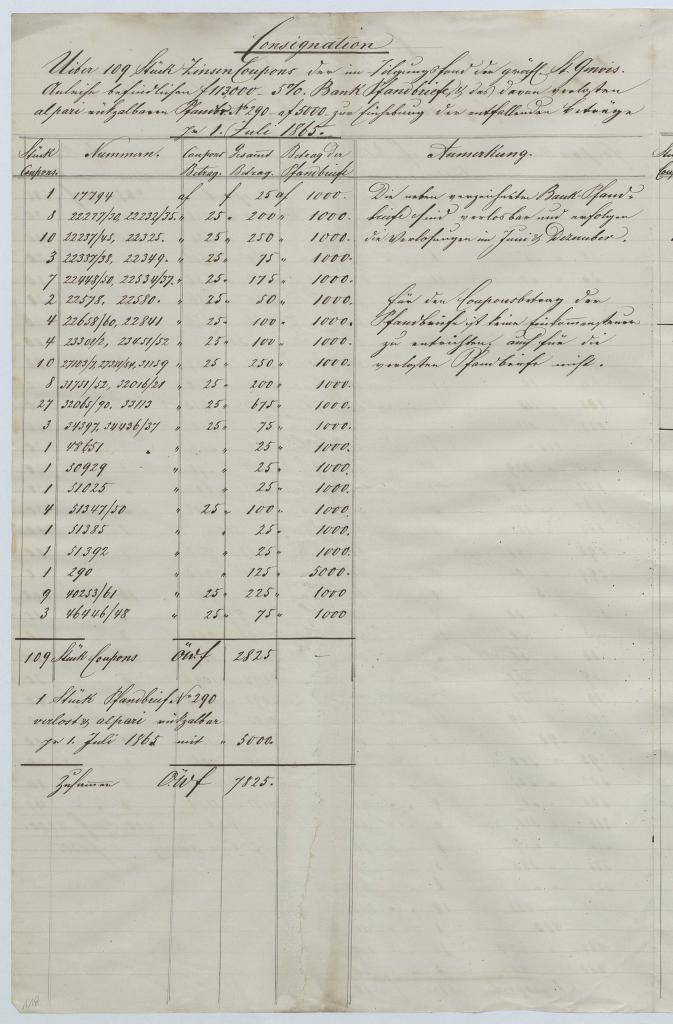 Consignation
Uiber 109 Stück Zinsen Coupons der im Tilgungsfond der gräfl. St. Genois.
Anleihe befindlichen f 113000 5% Bank Pfandbriefe, & des davon verlosten
al pari rückzalbaren Pfandbr. No 290 – af 5000 zur Einhebung der entfallenden Beträge
pr 1. Juli 1865.
Stück Coupons. Nummern. Coupons Betrag. Gesammt Betrag. Betrag der Pfandbriefe Anmerkung.
1 17794 af f 25 af 1000.
8 22227/30, 22232/35. " 25 " 200 " 1000.
10 22237/45, 22325. " 25 " 250 " 1000.
3 22337/38, 22349. " 25 " 75 " 1000.
7 22448/50, 22534/37. " 25 " 175 " 1000.
2 22578, 22580. " 25 " 50 " 1000.
4 22658/60, 22841 " 25 " 100 " 1000.
4 23301/2, 23451/52 " 25 " 100 " 1000.
10 31159 " 25 " 250 " 1000.
8 31751/52, 32016/21 " 25 " 200 " 1000.
27 32065/90, 33113 " 25 " 675 " 1000.
3 34397, 34436/37 " 25 " 75 " 1000.
1 48651 " " 25 " 1000.
1 50929 " " 25 " 1000.
1 51025 " " 25 " 1000.
4 51347/50 " 25 " 100 " 1000.
1 51385 " " 25 " 1000.
1 51392 " " 25 " 1000.
1 290 " " 125 " 5000.
9 40253/61 " 25 " 225 " 1000
3 46446/48 " 25 " 75 " 1000
109 Stück Coupons ÖWf 2825 –
1 Stück Pfandbrief No 290
verlost & al pari rückzalbar
pr 1. Juli 1865 mit " 5000.
Zusammen Ö.Wf 7825.
Die neben verzeichneten Bank-Pfand-
briefe sind verlosbar und erfolgen
die Verlosungen im Juni & Dezember.
Für den Couponsbetrag der
Pfandbriefe ist keine Einkommensteuer
zu entrichten, auch für die
verlosten Pfandbriefe nicht.